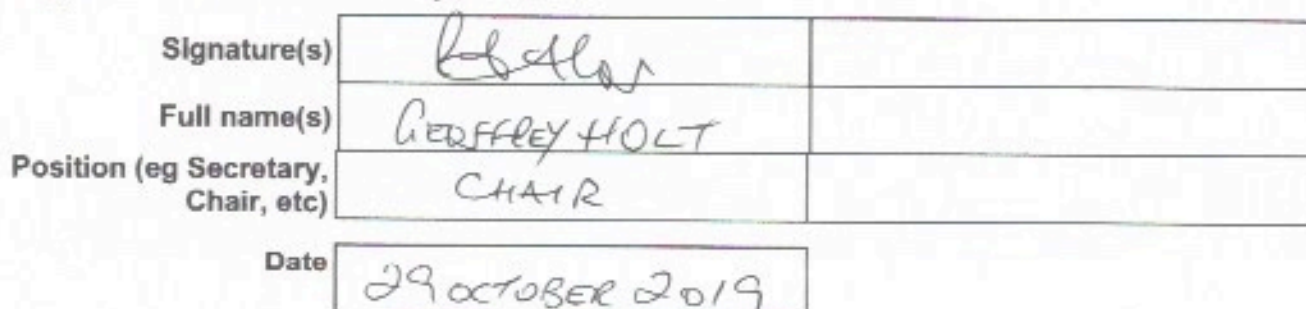 Signature(s)
Full name(s) GEOFFREY HOLT
Position (eg Secretary,
Chair, etc) CHAIR
Date 29 OCTOBER 2019